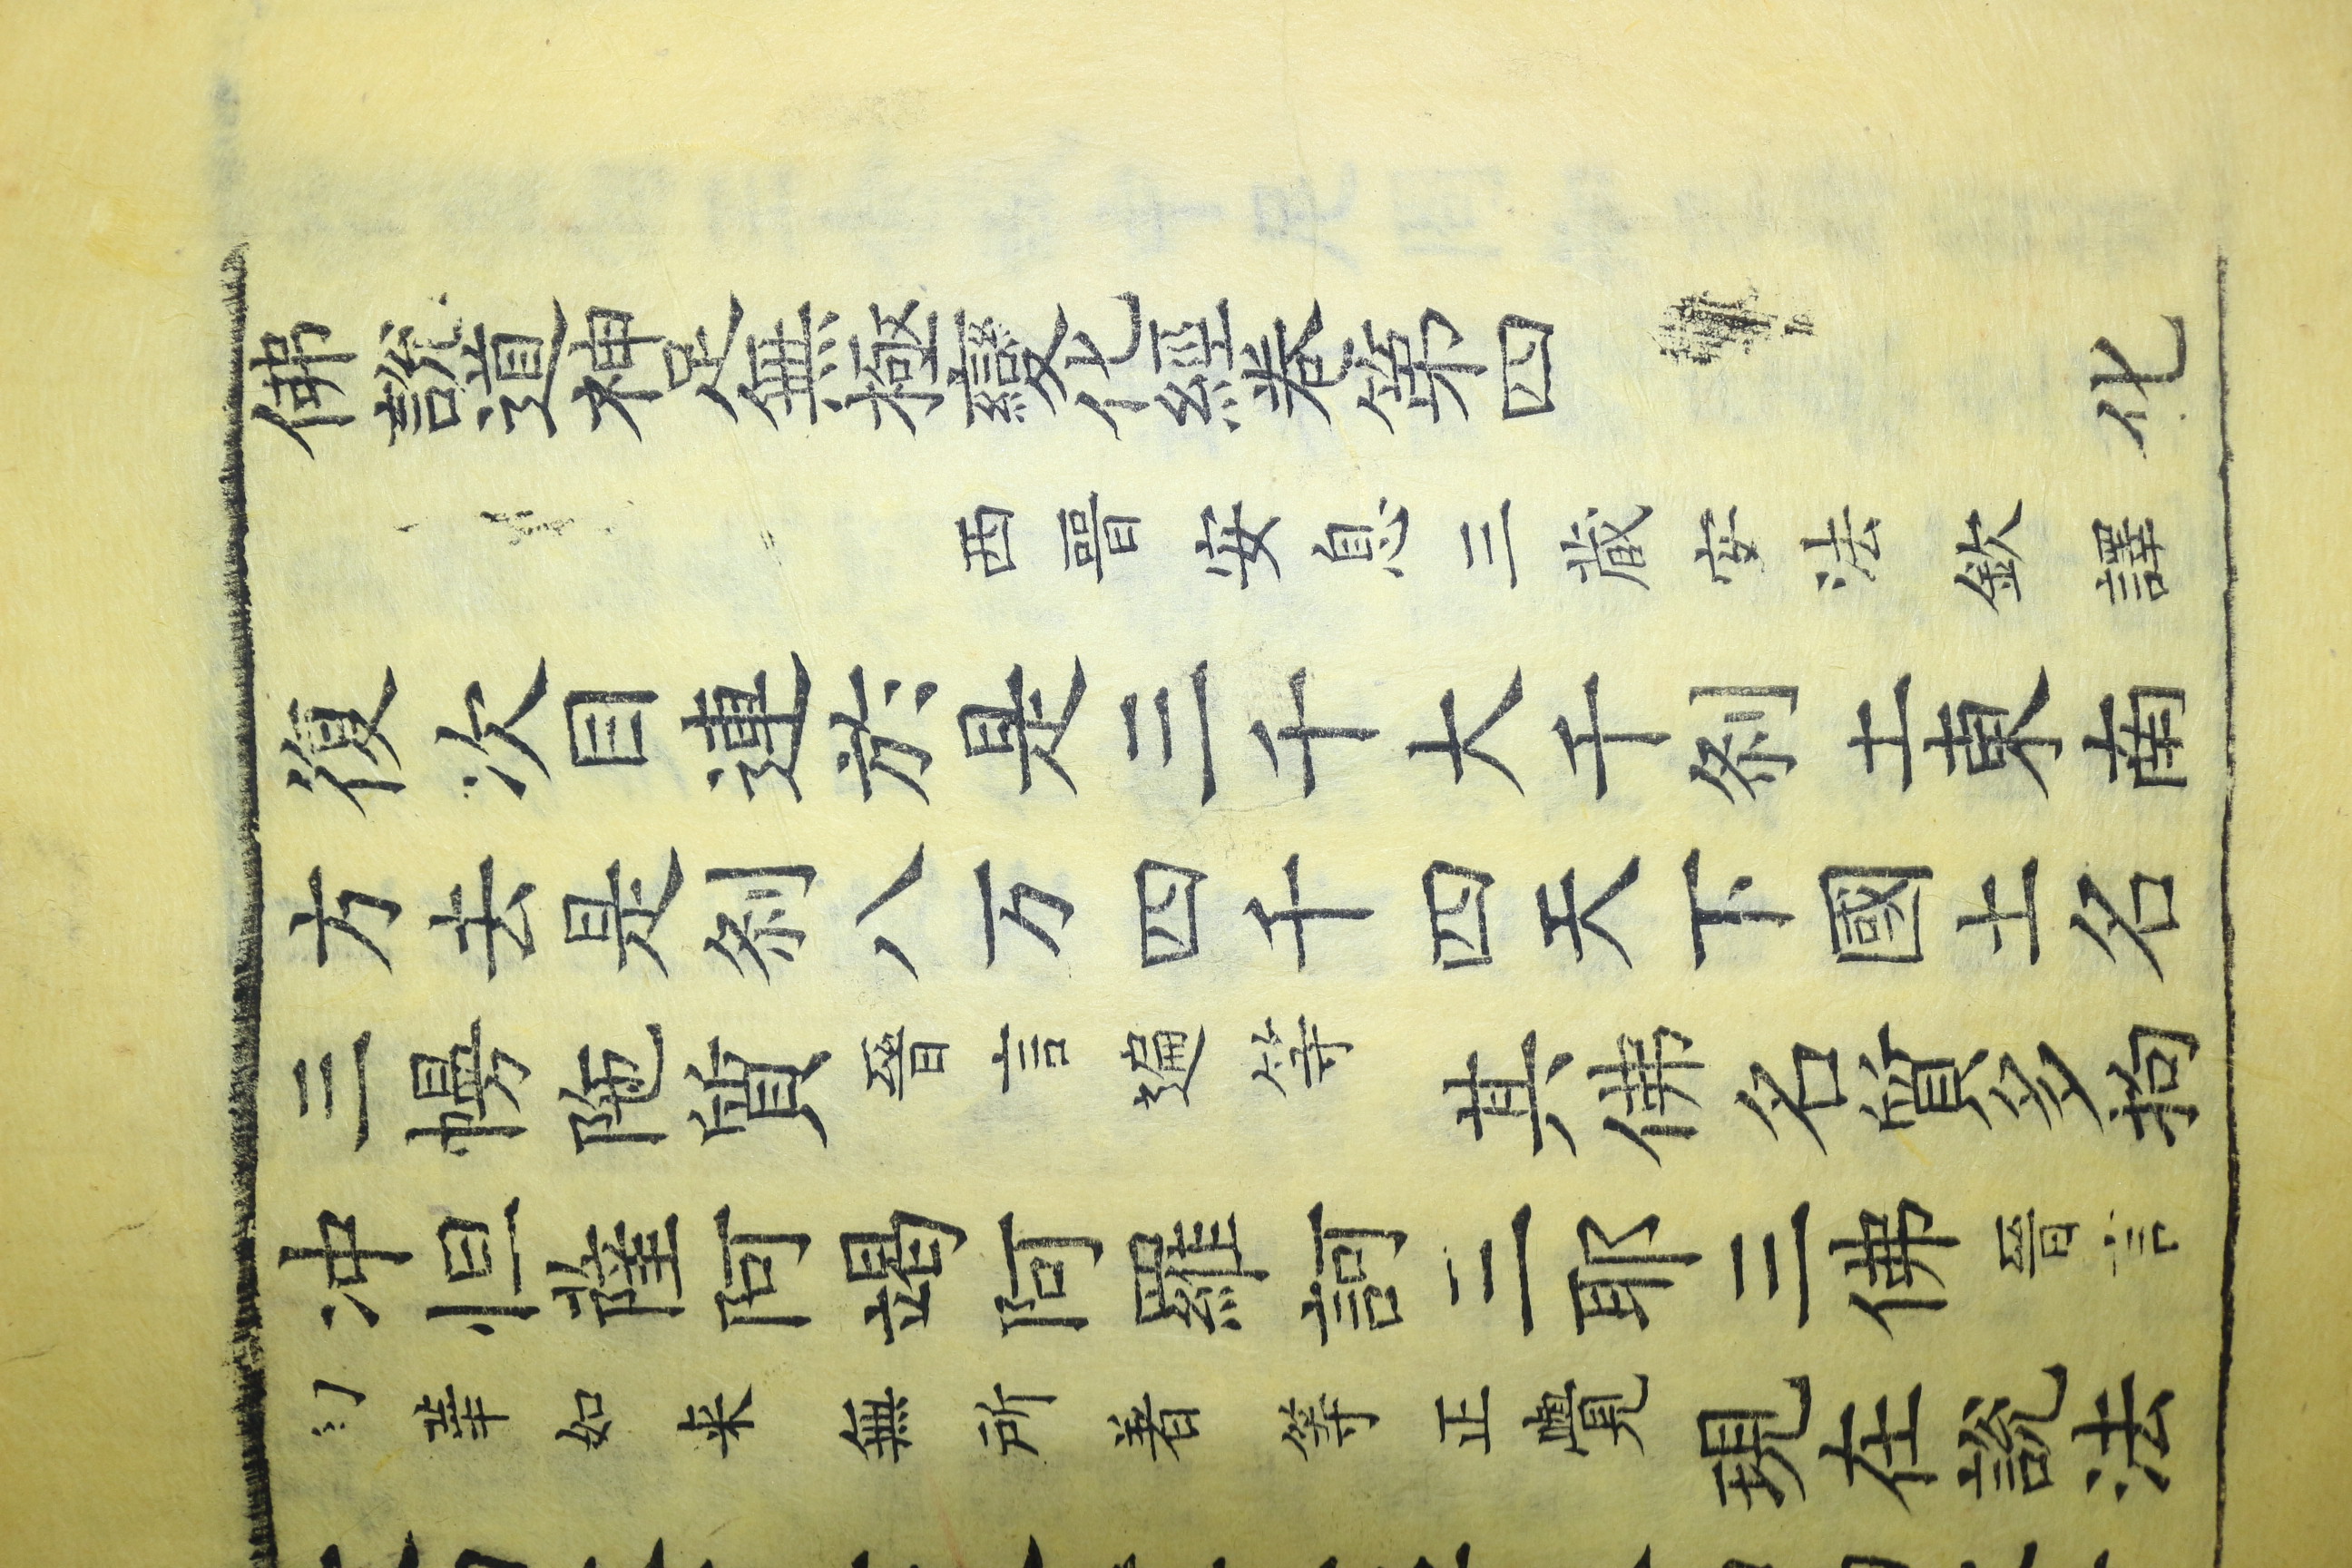 佛說道神足無極變化經卷第四 化
西晉安息三蔵安法欽譯
復次目連於是三千大千刹土東南
方去是刹八万四千四天下國土名
三幔陁質晉言遍等其佛名質多拘
冲怛薩阿竭阿羅訶三耶三佛晉言
華如来無所著等正覺現在說法